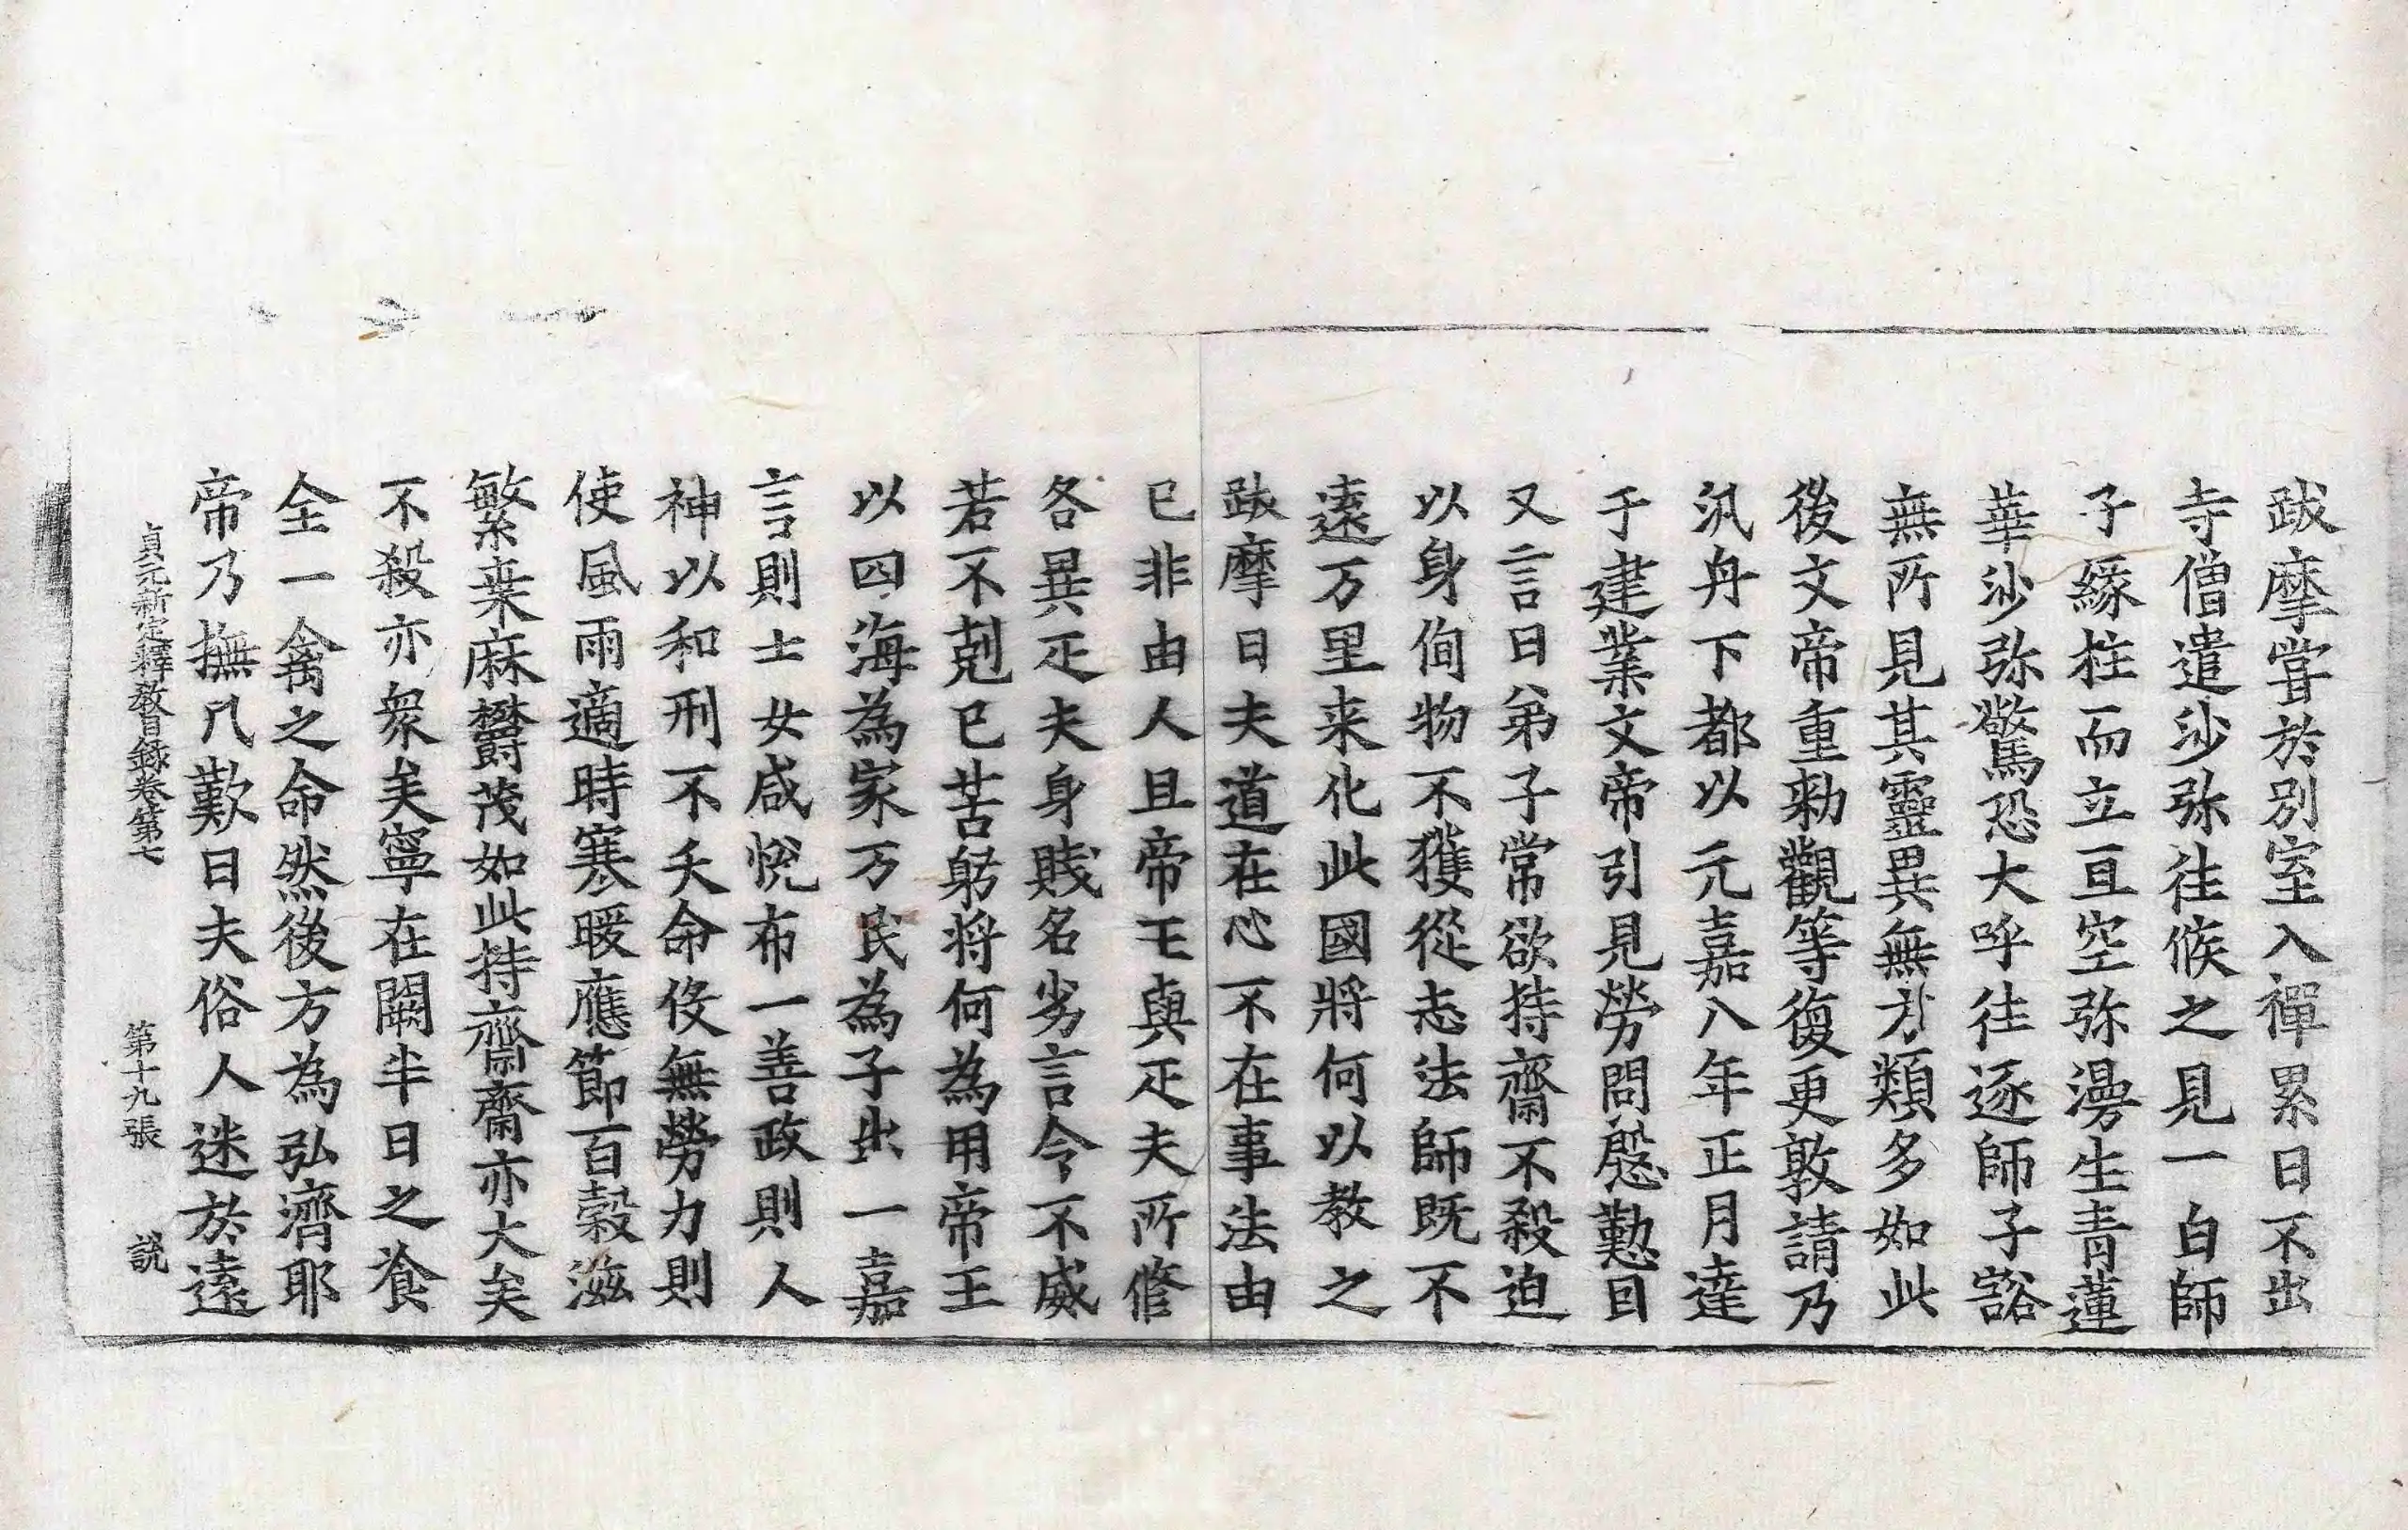 跋摩甞於別室入禪累日不出
寺僧遣沙弥往候之見一白師
子緣柱而立亘空弥漫生青蓮
華沙弥驚恐大呼往逐師子豁
無所見其靈異無方類多如此
後文帝重勑觀等復更敦請乃
汎舟下都以元嘉八年正月達
于建業文帝引見勞問慇懃因
又言曰弟子常欲持齋不殺迫
以身徇物不獲從志法師既不
遠万里来化此國將何以教之
跋摩曰夫道在心不在事法由
已非由人且帝王與疋夫所修
各異疋夫身賤名劣言令不威
若不剋已苦躬将何為用帝王
以四海為家万民為子出一嘉
言則士女咸恱布一善政則人
神以和刑不夭命役無勞力則
使風雨適時寒暖應節百穀滋
繁桒麻欝茂如此持齋齋亦大矣
不殺亦衆矣寧在闕半日之飡
全一禽之命然後方為弘濟耶
帝乃撫几歎曰夫俗人迷於遠
貞元新定釋教目錄卷第七 第十九張 説